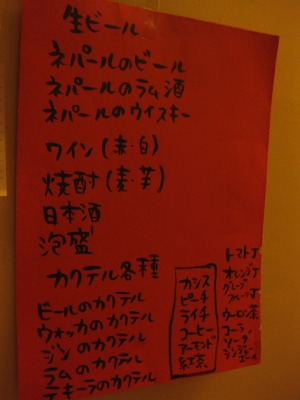 生ビール
ネパールのビール
ネパールのラム酒
ネパールのウイスキー
ワイン(赤・白)
焼酎(麦・芋)
日本酒
泡盛
カクテル各種
ビールのカクテル
ウォッカのカクテル
ジンのカクテル
ラムのカクテル
テキーラのカクテル
カシス
ピーチ
ライチ
コーヒー
アーモンド
紅茶
トマトJ
オレンジJ
グレープ
フルーツJ
ウーロン茶
コーラ
ソーダ
ジンジャー
エール